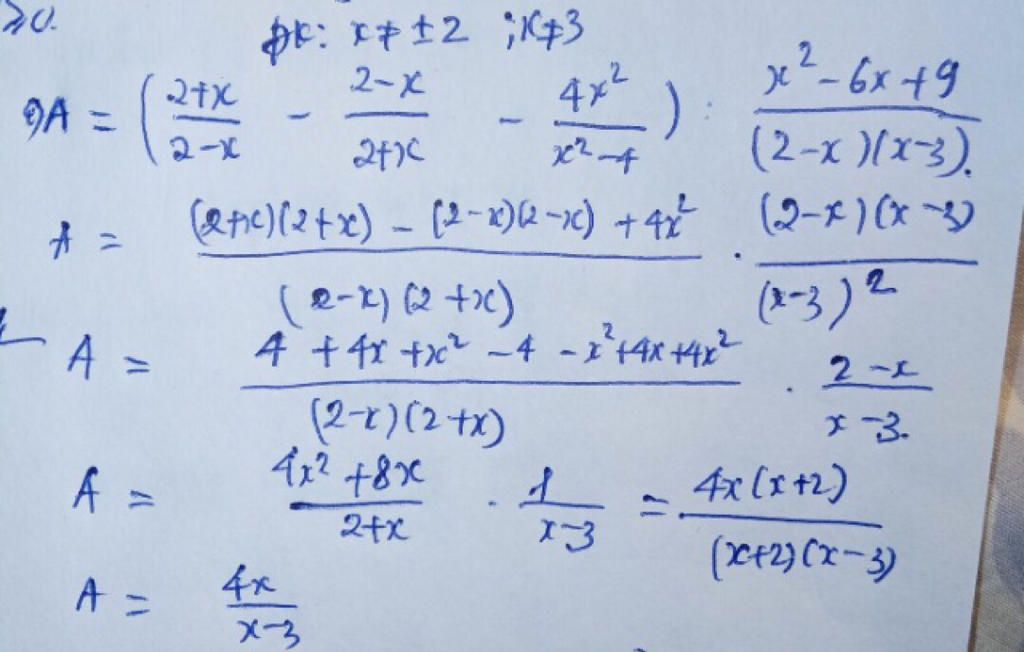 ≥0.
ĐK: x ≠ ±2 ; x ≠ 3
A = ( (2+x)/(2-x) - (2-x)/(2+x) - 4x²/(x²-4) ) : (x²-6x+9)/((2-x)(x-3)).
A = ((2+x)(2+x) - (2-x)(2-x) + 4x²)/((2-x)(2+x)) . ((2-x)(x-3))/((x-3)²)
A = (4+4x+x²-4-x²+4x+4x²)/((2-x)(2+x)) . (2-x)/(x-3).
A = (4x²+8x)/(2+x) . 1/(x-3) = (4x(x+2))/((x+2)(x-3))
A = 4x/(x-3)